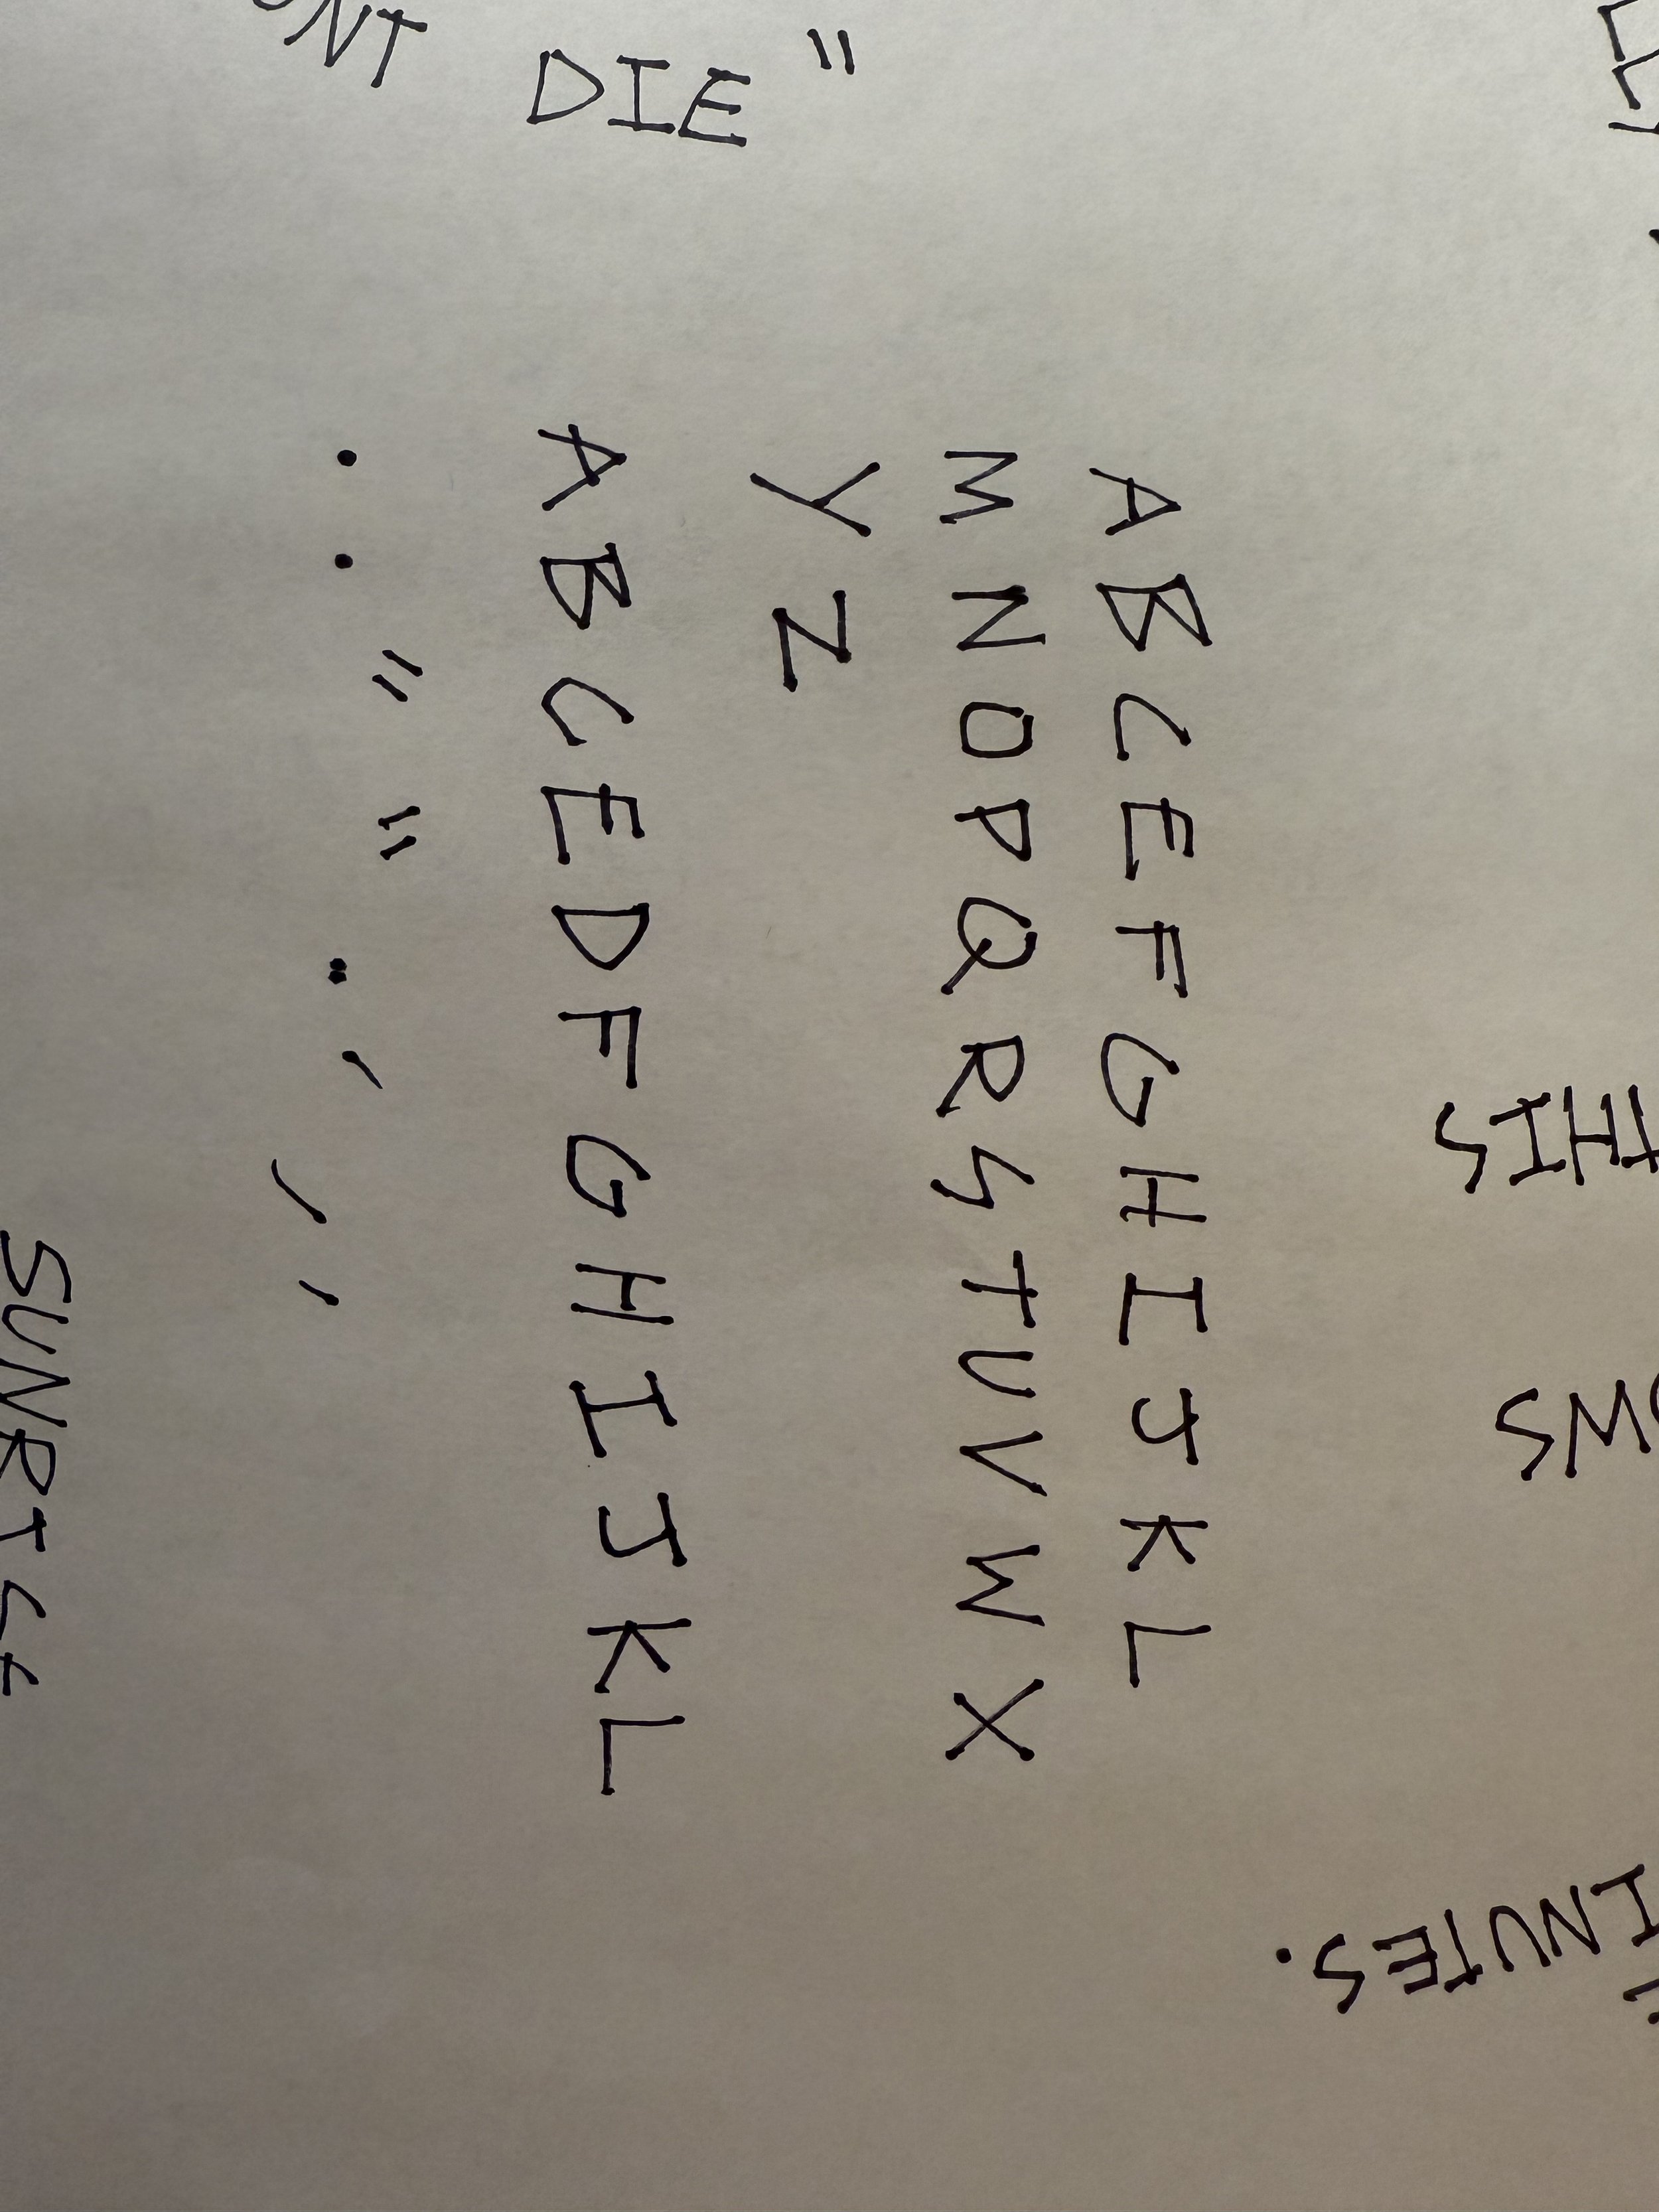 DIE"
A B C E F G H I J K L
M N O P Q R S T U V W X
Y Z
A B C E D F G H I J K L
. . " " : ' , '
THIS
INUTES.